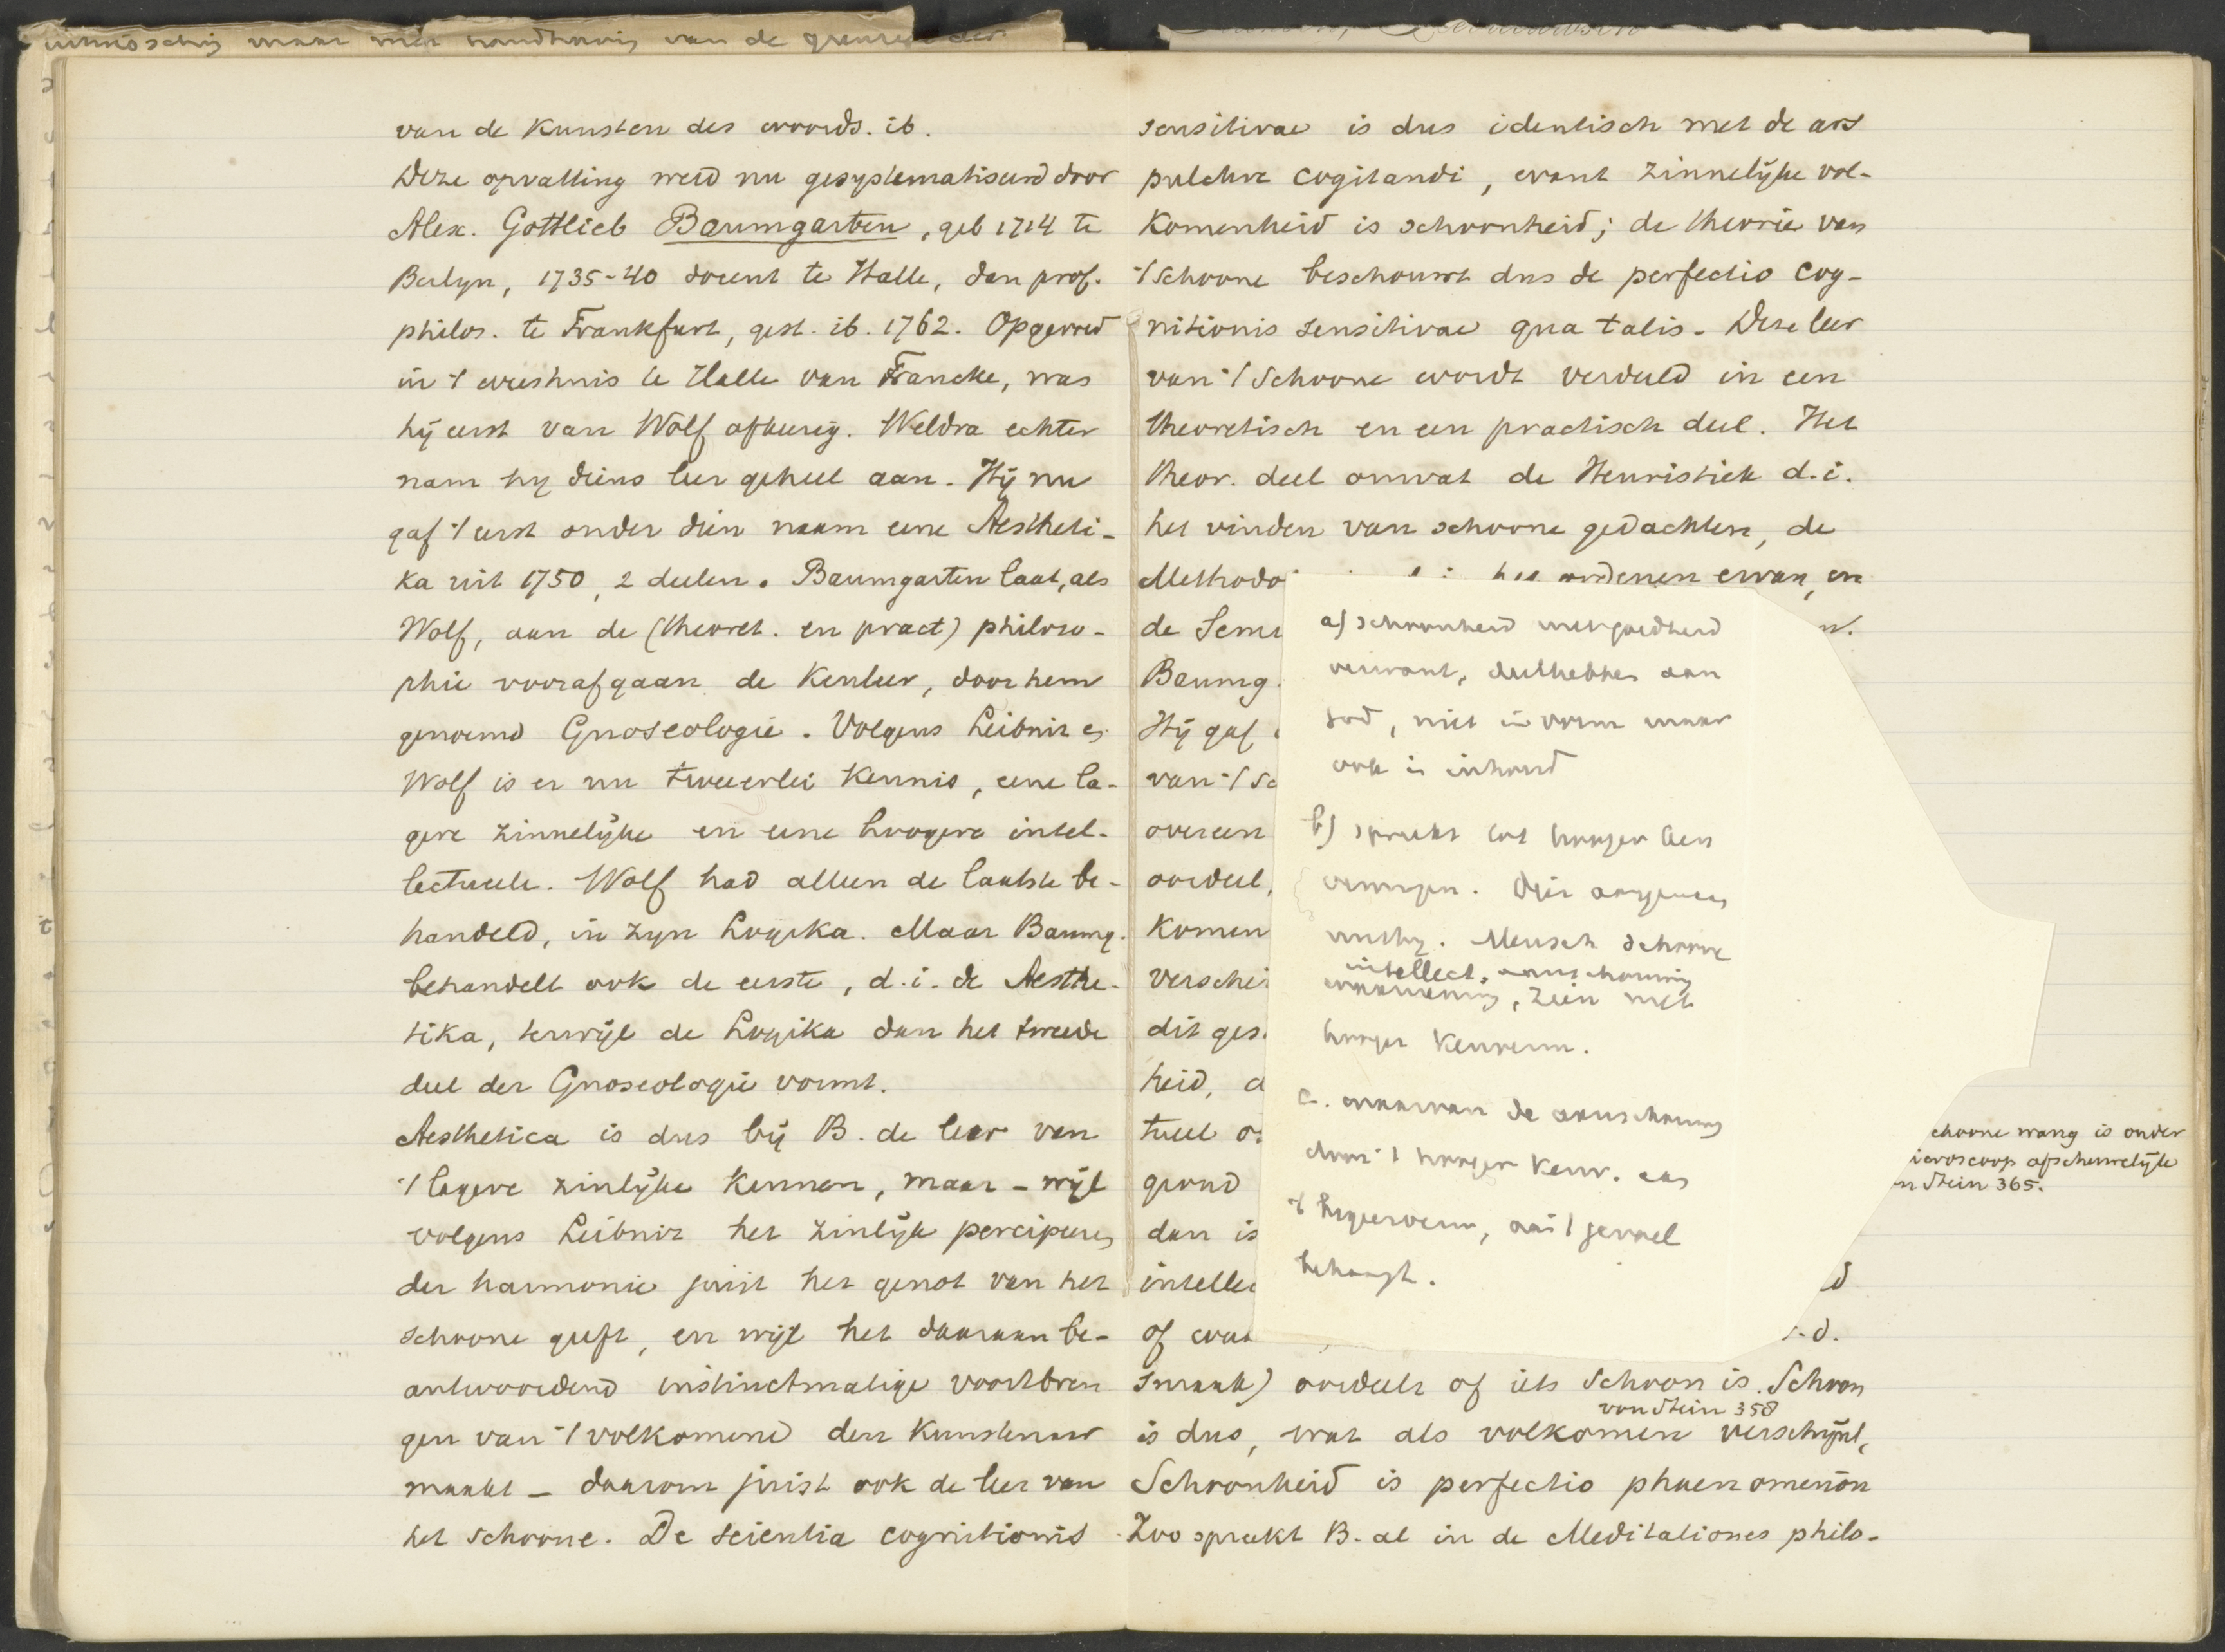 van de Kunsten des woords. ib.
Deze opvatting werd nu gesystematiseerd door
Alex. Gottlieb Baumgarten, geb 1714 te
Berlyn, 1735-40 docent te Halle, dan prof.
philos. te Frankfurt, gest. ib. 1762. Opgevoed
in 't weeshuis te Halle van Francke, was
hij eerst van Wolf afkeerig. Weldra echter
nam hy diens leer geheel aan. Hij nu
gaf 't eerst onder dien naam eene Aestheti-
ka uit 1750, 2 deelen. Baumgarten laat, als
Wolf, aan de (theoret. en pract) philoso-
phie voorafgaan de Kenleer, door hem
genoemd Gnoseologie. Volgens Leibniz en
Wolf is er nu tweeerlei Kennis, eene la-
gere zinnelijke en eene hoogere intel-
lectueele. Wolf had alleen de laatste be-
handeld, in zyn Logika. Maar Baumg.
behandelt ook de eerste, d.i. de Aesthe-
tika, terwijl de Logika dan het tweede
deel der Gnoseologie vormt.
Aesthetica is dus bij B. de leer van
't lagere zinlijke Kennen, maar - wijl
volgens Leibniz het zinlijk percipieeren
der harmonie juist het genot van het
schoone geeft, en wijl het daaraan be-
antwoordend instinctmatige voortbren
gen van 't volkomene den Kunstenaar
maakt - daarom juist ook de leer van
het schoone. De scientia cognitionis
sensitivae is dus identisch met de ars
pulchre cogitandi, want zinnelijke vol-
Komenheid is schoonheid; de theorie van
't Schoone beschouwt dus de perfectio cog-
nitionis sensitivae qua talis. Deze leer
van 't Schoone wordt verdeeld in een
theoretisch en een practisch deel. Het
theor. deel omvat de Heuristiek d.i.
het vinden van schoone gedachten, de
Methodo het ordenen ervan, en
de Semi
Baumg.
Hij gaf
van 't Sc
overeen
oordeel,
Komen
verschei
dit ges
heid, d
tueel
grond
dan is
intellec
of
smaak) oordeelt of iets Schoon is. Schoon
von Stein 358
is dus, wat als volkomen verschijnt,
Schoonheid is perfectio phaenomenon
Zoo spreekt B. al in de Meditationes philo-
a) schoonheid met goedheid
verwant, deelhebben aan
God, niet in vorm maar
ook in inhoud
b) spreekt tot hooger ken
vermogen. Dier
Mensch schoone
intellect. aanschouwing
waarneming, zien met
hooger Kenverm.
c. waarvan de aanschouwing
door 't hooger Kenv. aan
't begeerverm, aan 't gevoel
behaagt.
choone wang is onder
icroscoop afschuwelijk
on Stein 365.